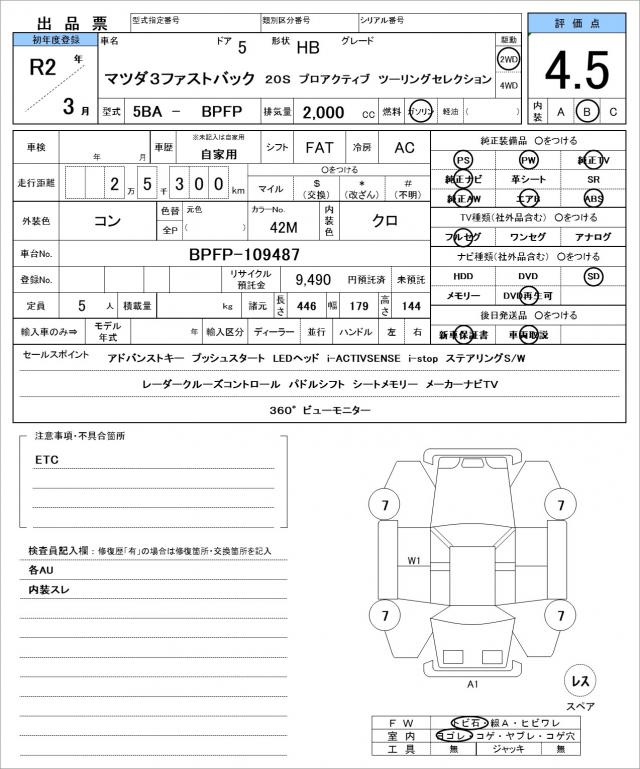 出品票 型式指定番号 類別区分番号 シリアル番号 評価点
初年度登録 車名 ドア 5 形状 HB グレード 駆動
R2 年 マツダ3ファストバック 20S プロアクティブ ツーリングセレクション 2WD 4.5
4WD
3 月 型式 5BA － BPFP 排気量 2,000 cc 燃料 ガソリン 軽油 ( ) 内装 A B C
車検 年 月 車歴 ※未記入は自家用 自家用 シフト FAT 冷房 AC 純正装備品 〇をつける
PS PW 純正TV
走行距離 2 万 5 千 3 0 0 km 〇をつける 純正ナビ 革シート SR
マイル $ (交換) * (改ざん) # (不明) 純正AW エアB ABS
外装色 コン 色替 元色 カラーNo. 内装色 クロ TV種類(社外品含む) 〇をつける
全P ( ) 42M フルセグ ワンセグ アナログ
車台No. BPFP-109487 ナビ種類(社外品含む) 〇をつける
登録No. リサイクル預託金 9,490 円預託済 未預託 HDD DVD SD
定員 5 人 積載量 kg 諸元 長さ 446 幅 179 高さ 144 メモリー DVD再生可
後日発送品 〇をつける
輸入車のみ⇒ モデル年式 年 輸入区分 ディーラー 並行 ハンドル 左 右 新車保証書 車両取説
セールスポイント アドバンストキー プッシュスタート LEDヘッド i-ACTIVSENSE i-stop ステアリングS/W
レーダークルーズコントロール パドルシフト シートメモリー メーカーナビTV
360° ビューモニター
注意事項・不具合箇所
ETC
検査員記入欄：修復歴「有」の場合は修復箇所・交換箇所を記入
各AU
内装スレ
7 7
W1
7 7
A1
レス
スペア
FW トビ石・線A・ヒビワレ
室内 ヨゴレ・コゲ・ヤブレ・コゲ穴
工具 無 ジャッキ 無